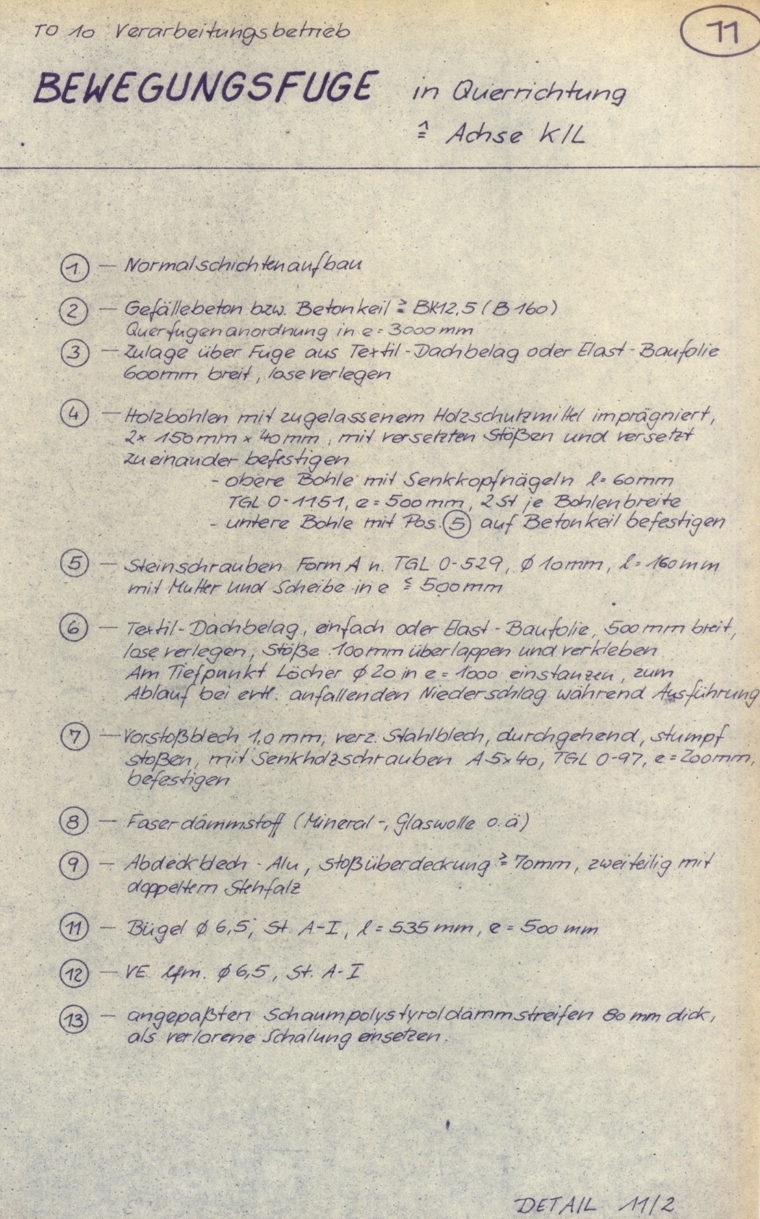 TO 10 Verarbeitungsbetrieb
11
BEWEGUNGSFUGE in Querrichtung
≙ Achse K/L
1 — Normalschichtenaufbau
2 — Gefällebeton bzw. Betonkeil ≧ BK12,5 (B160)
Querfugenanordnung in e = 3000 mm
3 — Zulage über Fuge aus Textil-Dachbelag oder Elast-Baufolie
600mm breit, lose verlegen
4 — Holzbohlen mit zugelassenem Holzschutzmittel imprägniert,
2x 150mm x 40mm, mit versetzten Stößen und versetzt
zueinander befestigen
- obere Bohle mit Senkkopfnägeln l = 60mm
TGL 0-1151, e = 500mm, 2St je Bohlenbreite
- untere Bohle mit Pos. 5 auf Betonkeil befestigen
5 — Steinschrauben Form A n. TGL 0-529, ϕ 10mm, l = 160mm
mit Mutter und Scheibe in e ≦ 500mm
6 — Textil-Dachbelag, einfach oder Elast-Baufolie, 500mm breit,
lose verlegen, Stöße 100mm überlappen und verkleben
Am Tiefpunkt Löcher ϕ 20 in e = 1000 einstanzen, zum
Ablauf bei evtl. anfallenden Niederschlag während Ausführung
7 — Vorstoßblech 1,0 mm, verz. Stahlblech, durchgehend, stumpf
stoßen, mit Senkholzschrauben A 5x40, TGL 0-97, e = 200mm,
befestigen
8 — Faserdämmstoff (Mineral-, Glaswolle o.ä)
9 — Abdeckblech - Alu, Stoßüberdeckung ≧ 70mm, zweiteilig mit
doppeltem Stehfalz
11 — Bügel ϕ 6,5, St. A-I, l = 535 mm, e = 500 mm
12 — VE lfm. ϕ 6,5, St. A-I
13 — angepaßten Schaumpolystyroldämmstreifen 80 mm dick,
als verlorene Schalung einsetzen.
DETAIL 11/2